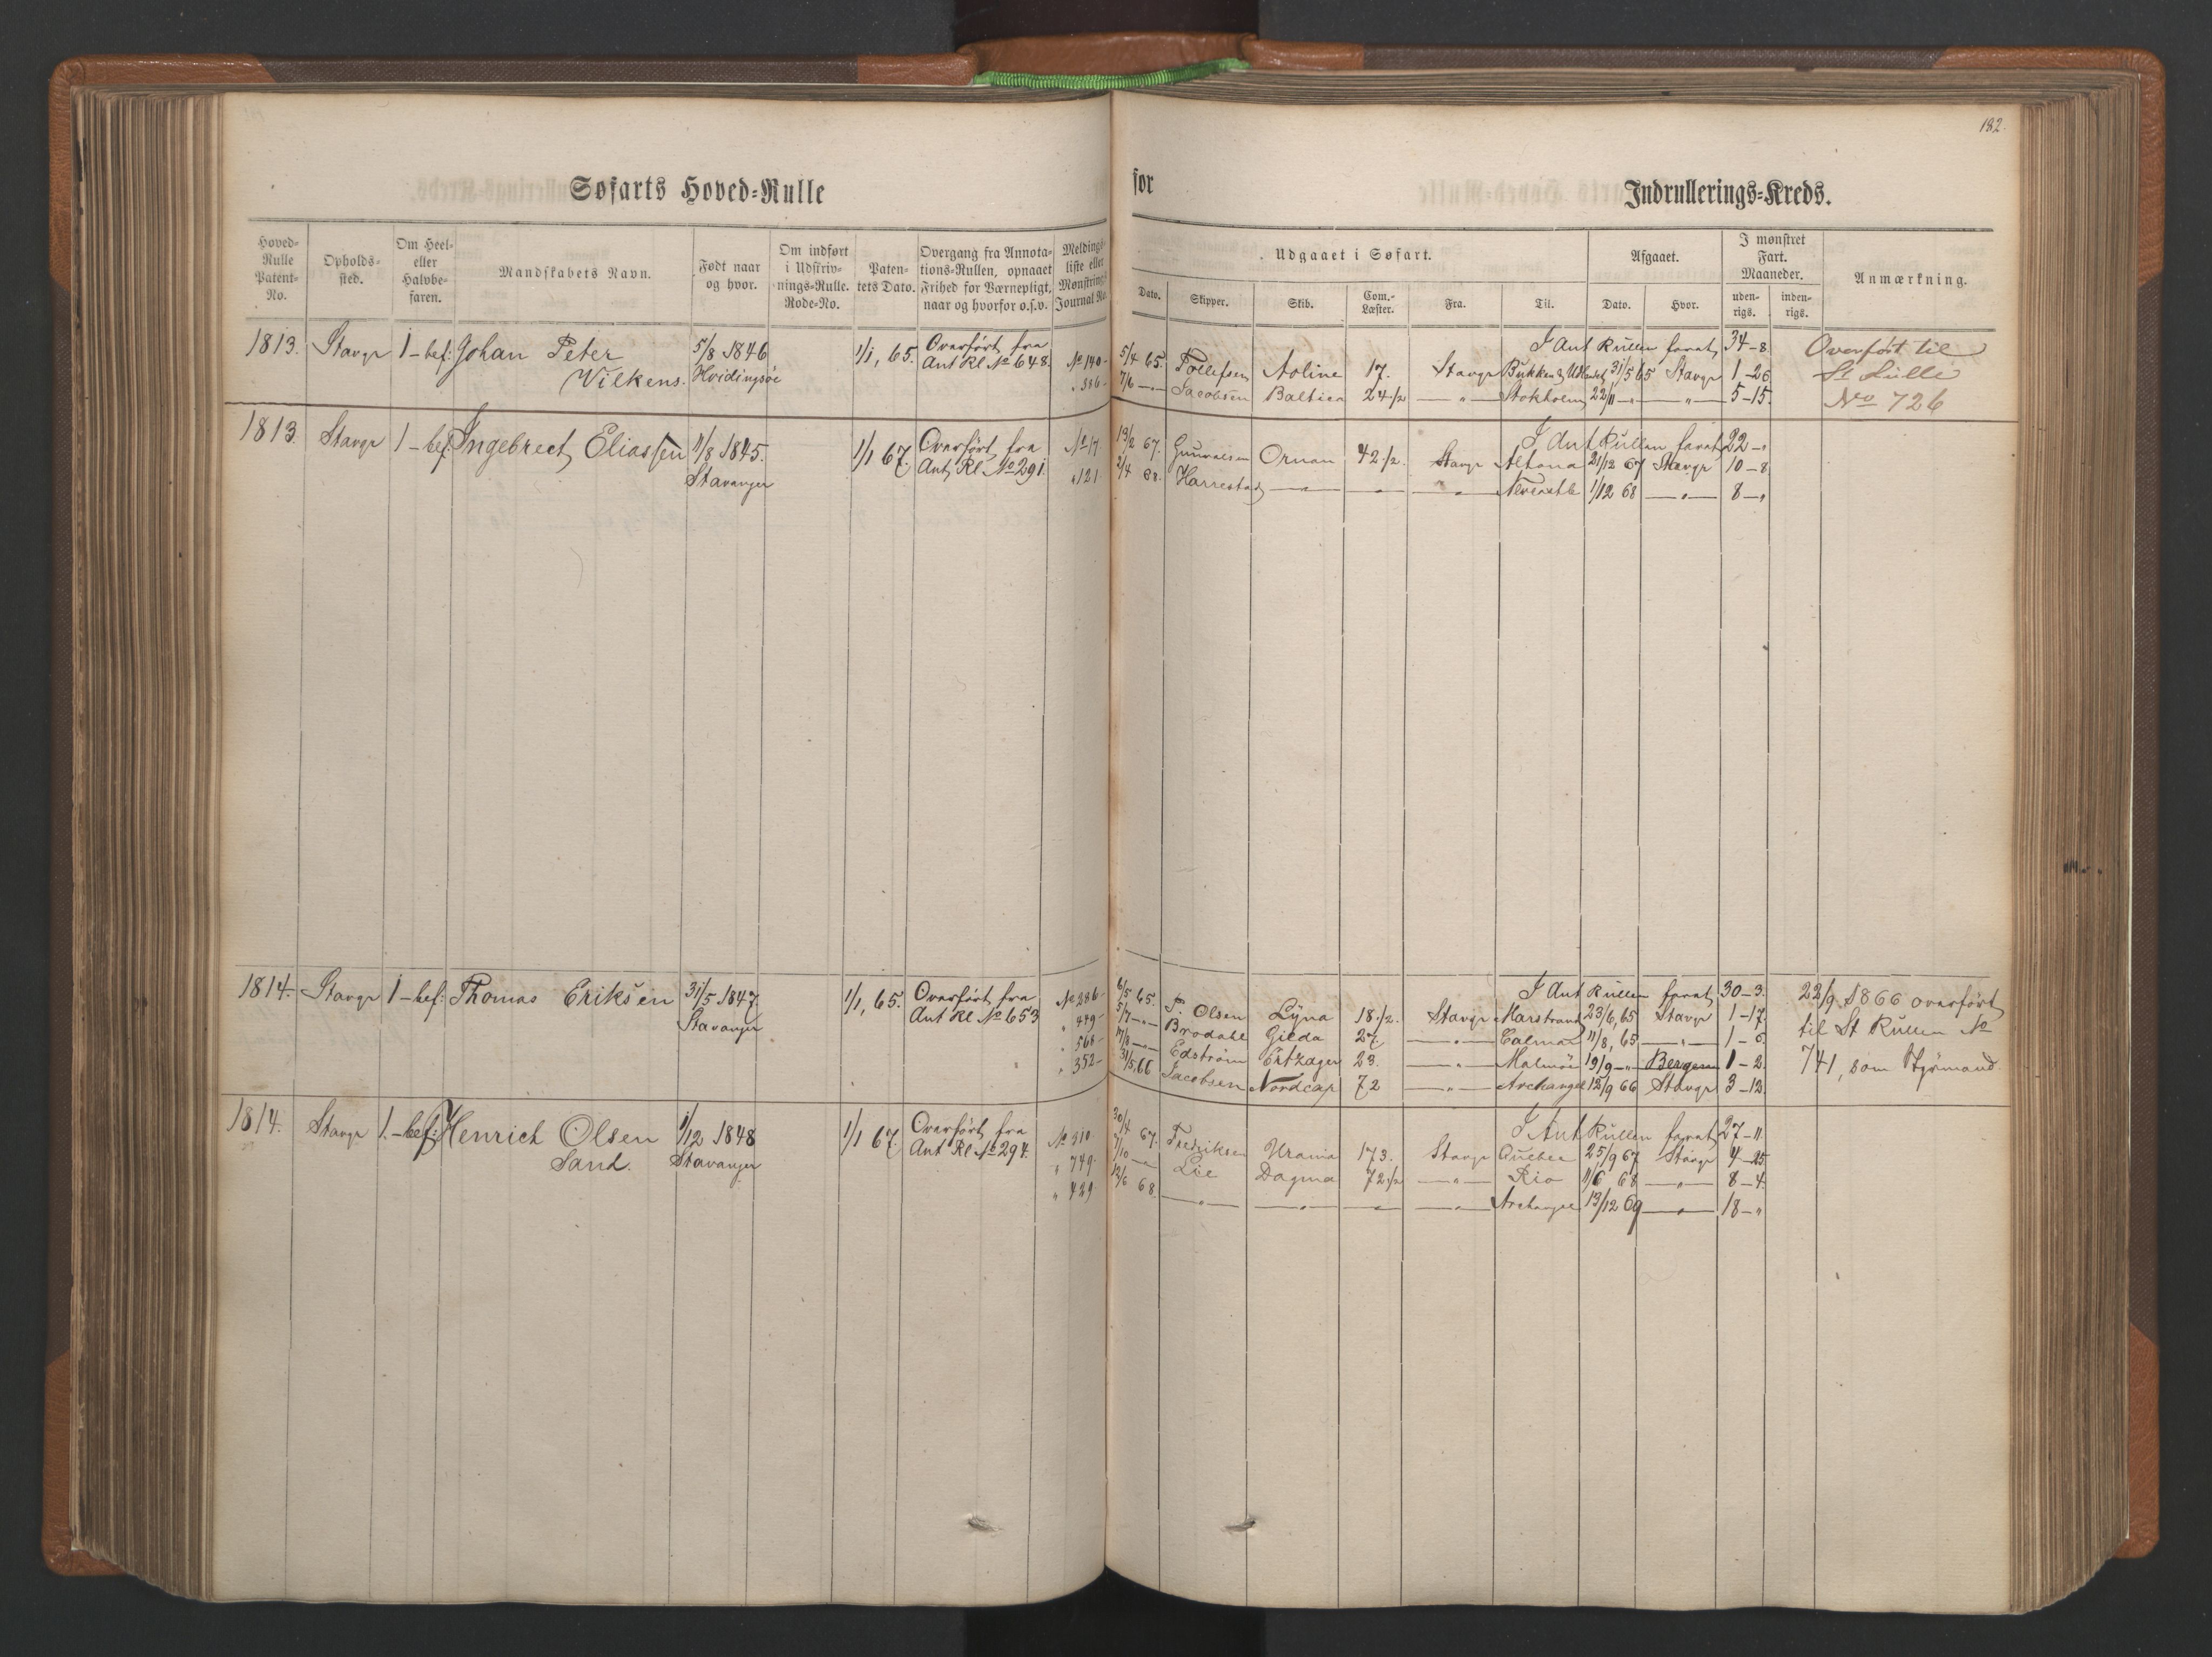 182.
Søfarts Hoved=Rulle
for
Indrullerings=Kreds.
Hoved=Rulle Patent=No.
Opholds=sted.
Om Heel= eller Halvbe=faren.
Mandskabets Navn.
Født naar og hvor.
Om indført i Udskriv=nings=Rulle. Rode=No.
Paten=tets Dato.
Overgang fra Annota=tions=Rullen, opnaaet Frihed for Værnepligt, naar og hvorfor o.s.v.
Meldings=liste eller Mønstrings Journal No.
Udgaaet i Søfart.
Dato.
Skipper.
Skib.
Com.=Læster.
Fra.
Til.
Afgaaet.
Dato.
Hvor.
I mønstret Fart. Maaneder.
uden=rigs.
inden=rigs.
Anmærkning.
1813. Stavgr 1-bef: Johan Peter 5/8 1846 1/1, 65. Overført fra I Ant Rullen faret 34-8 Overført til
Wilkens. Hvidingsøe Ant Rl No 648. No 140- 5/4 65. Tollefsen Aoline 17. Stavgr 31/5 65 Stavgr 1-26
" 386- 7/6 -"- Jacobsen Baltica 24 1/2 -"- Stokholm 22/11 -"- -"- 5-15. No 726
1813 Stavgr 1-bef. Ingebrect Eliassen 11/8 1845. 1/1 67. Overført fra I Ant Rullen faret 22-"
Stavanger Ant Rl No 291 No 17 13/2 67. Gunvalsen Ornan 42 1/2. Stavgr Altona 21/12 67 Stavgr 10-8
" 121 2/4 68. Harrestad -"- -"- -"- 1/12 68 -"- 8-"
1814. Stavgr 1-bef: Thomas Eriksen 31/5 1847. 1/1, 65. Overført fra I Ant Rullen faret 30-3. 22/9 1866 overført
Stavanger Ant Rl No 653 No 286- 6/5 65. P. Olsen Lyna 18 1/2. Stavgr Marstrand 23/6, 65 Stavgr 1-17. til St Rullen No
" 449- 5/7 -"- Brodahl Gilda 27. -"- Calmar 11/8, 65 -"- 1-6. 741, som Styrmand.
" 568- 17/8 -"- Edström 23. -"- Malmöe 19/9 -"- Bergen 1-2.
" 352- 31/5, 66 Jacobsen Nordcap 72 -"- Archangel 12/9 66 Stavgr 3-12.
1814. Stavgr 1.-bef: Henrich Olsen 1/12 1848 1/1 67. Overført fra I Ant Rullen faret 27-11.
Sand. Stavanger Ant Rl No 294. No 310. 30/4 67. Fredriksen Urania 173. Stavgr Quebec 25/9 67 Stavgr 4-25
" 749. 7/10 -"- Lie Dagma 72 1/2 -"- Rio 11/6 68 -"- 8-4.
" 429 12/6 68. -"- -"- -"- -"- Archangel 13/12 69 -"- 18-"